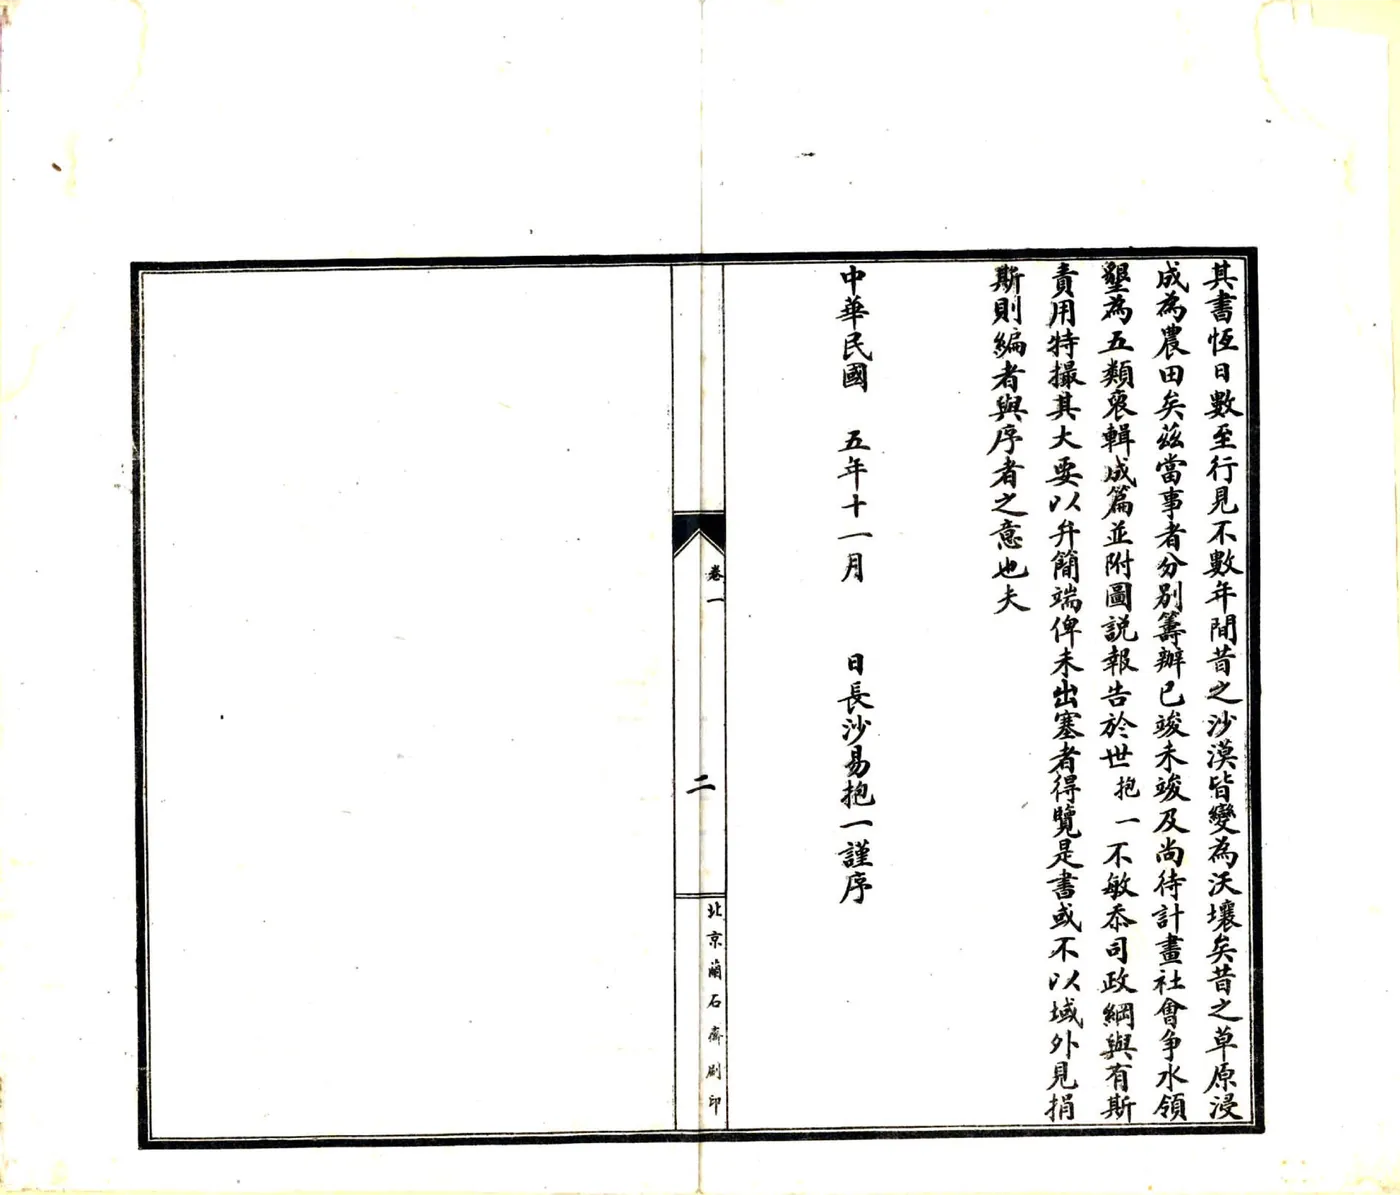 其書恆日數至行見不數年間昔之沙漠皆變為沃壤矣昔之草原浸
成為農田矣茲當事者分別籌辦已竣未竣及尚待計畫社會爭水領
墾為五類裒輯成篇並附圖説報告於世抱一不敏忝司政綱與有斯
責用特撮其大要以弁簡端俾未出塞者得覽是書或不以域外見捐
斯則編者與序者之意也夫
中華民國 五年十一月 日長沙易抱一謹序
卷一
二
北京蘭石齋刷印